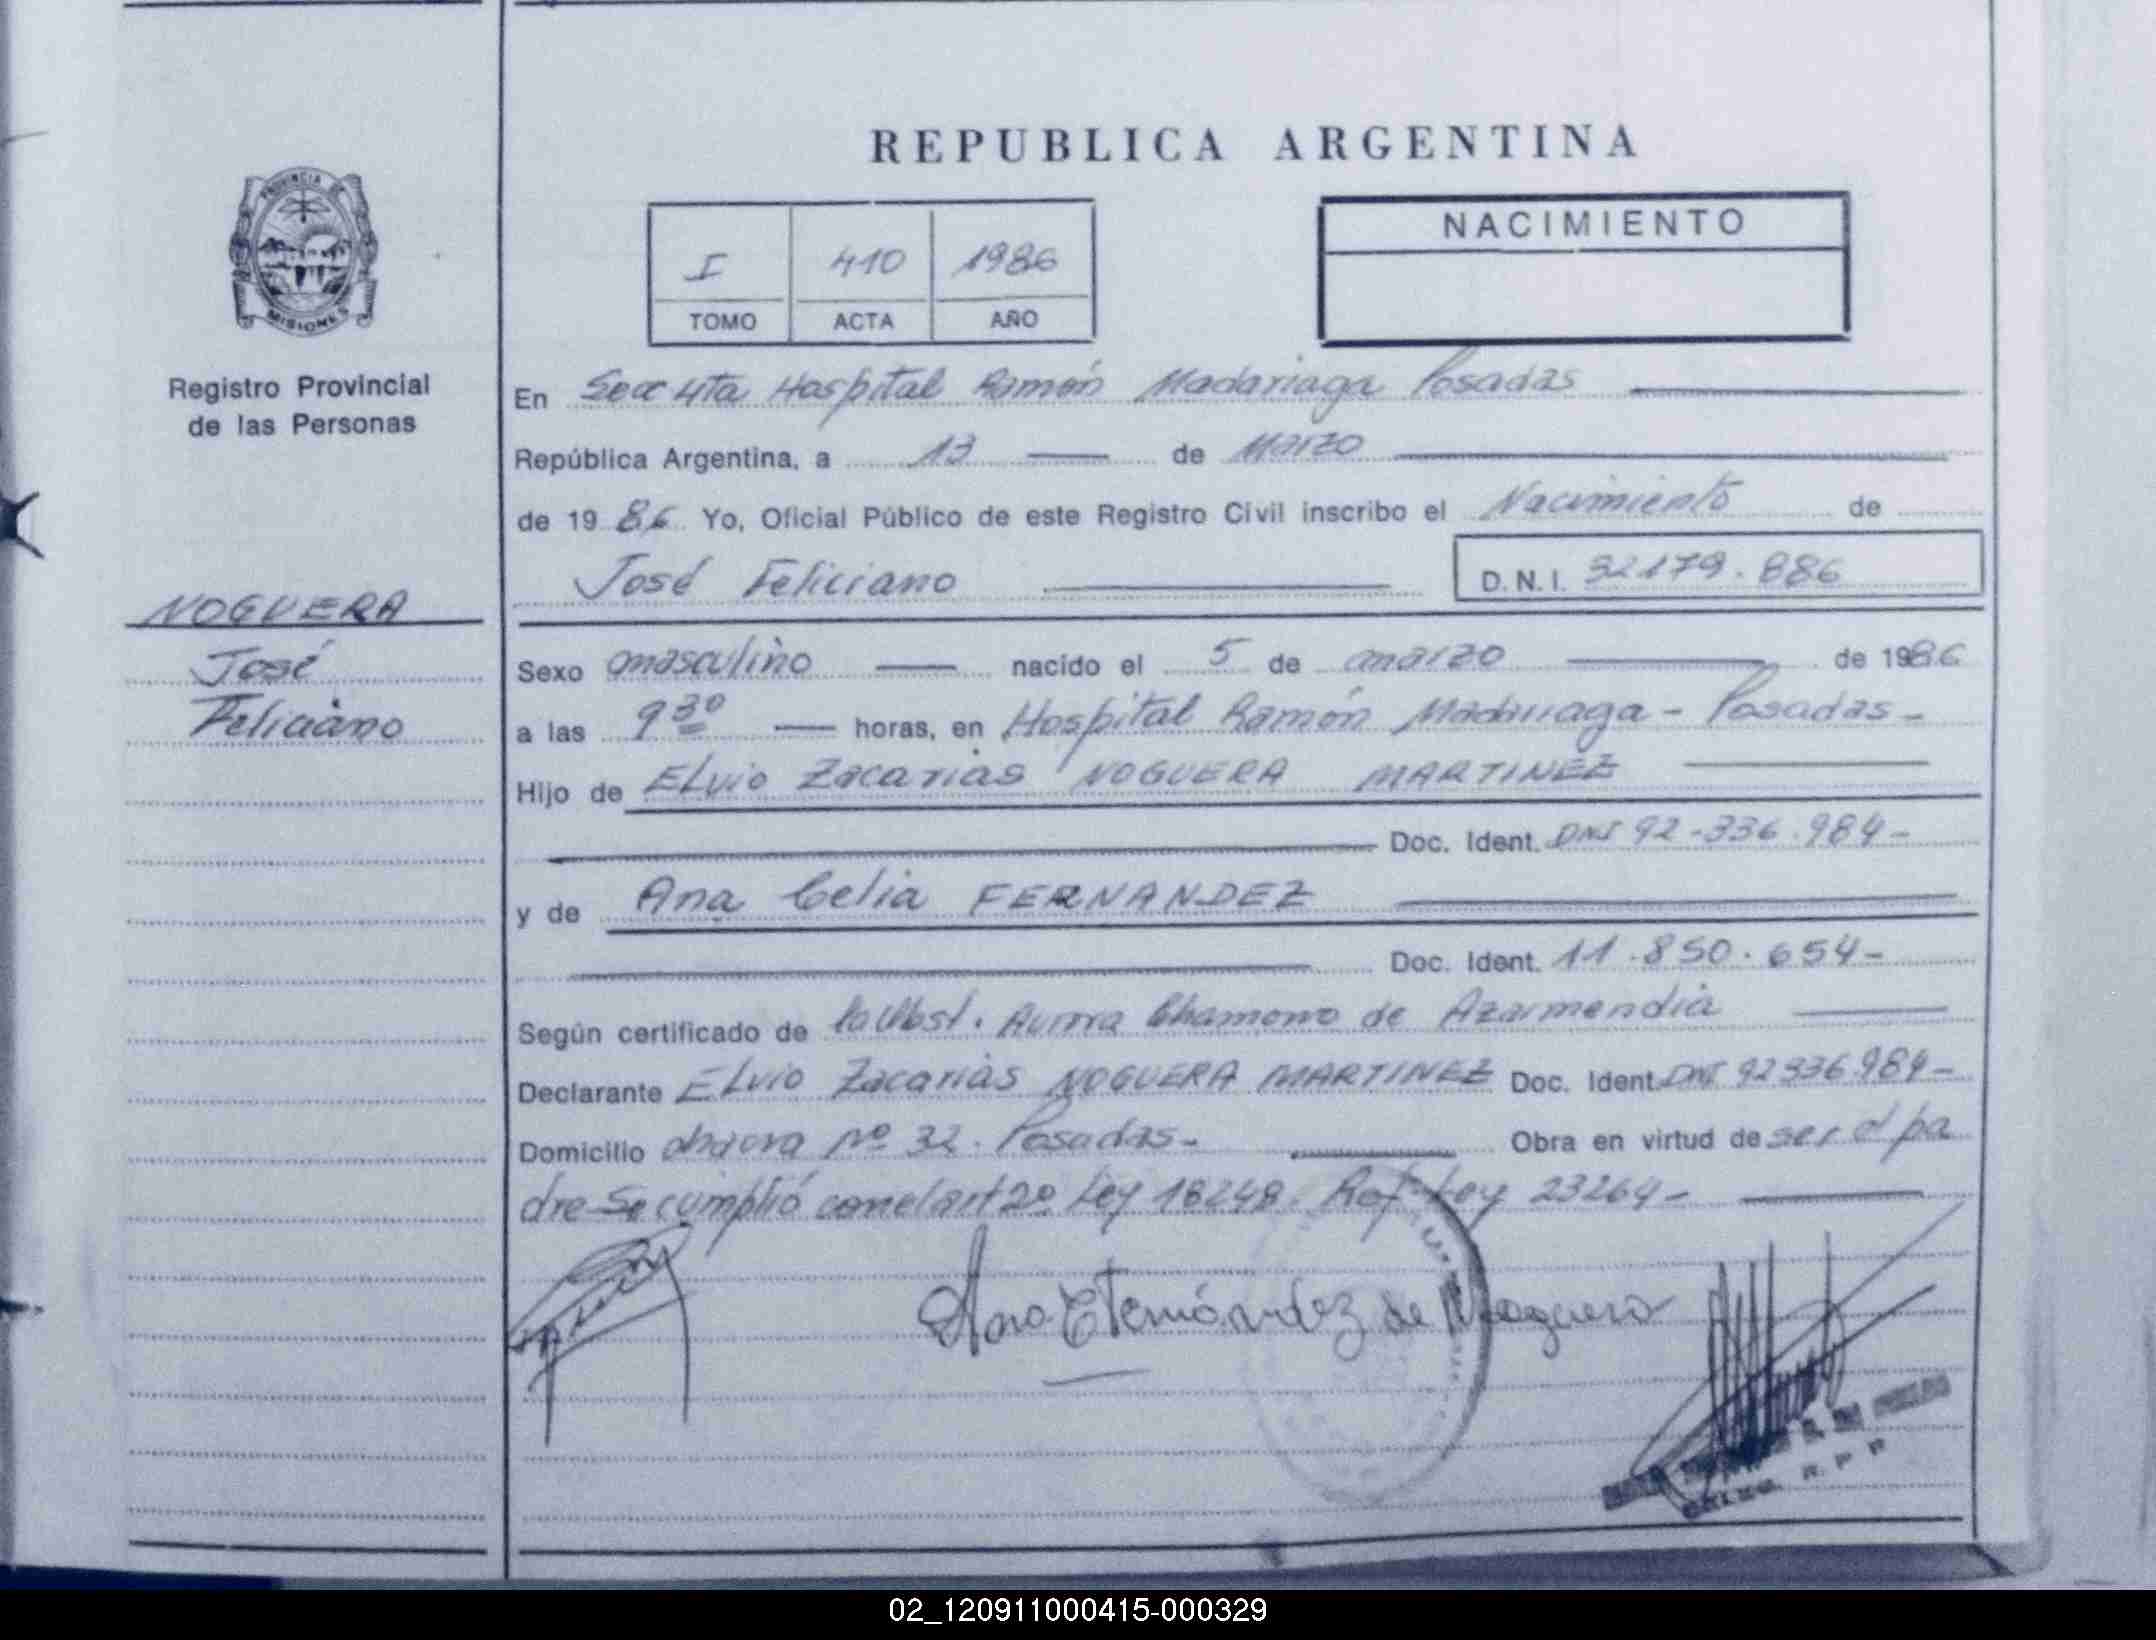 REPUBLICA ARGENTINA
PROVINCIA DE
MISIONES
Registro Provincial
de las Personas
I 410 1986
TOMO ACTA AÑO
NACIMIENTO
En Secc 4ta Hospital Ramón Madariaga Posadas
República Argentina, a 13 de Marzo
de 1986 Yo, Oficial Público de este Registro Civil inscribo el Nacimiento de
José Feliciano D.N.I. 32.179.886
NOGUERA
José
Feliciano
Sexo masculino nacido el 5 de marzo de 1986
a las 9 30 horas, en Hospital Ramón Madariaga - Posadas-
Hijo de Elvio Zacarias NOGUERA MARTINEZ
Doc. Ident. DNI 92-336.984-
y de Ana Celia FERNANDEZ
Doc. Ident. 11.850.654-
Según certificado de Aurora Chamorro de Azarmendia
Declarante Elvio Zacarias NOGUERA MARTINEZ Doc. Ident. DNI 92336984-
Domicilio chacra Nº 32. Posadas- Obra en virtud de ser el pa
dre-Se cumplió con el art 2º Ley 18248. Ref. Ley 23264-
Ana C Fernández de Noguera
R. P. P
02_120911000415-000329